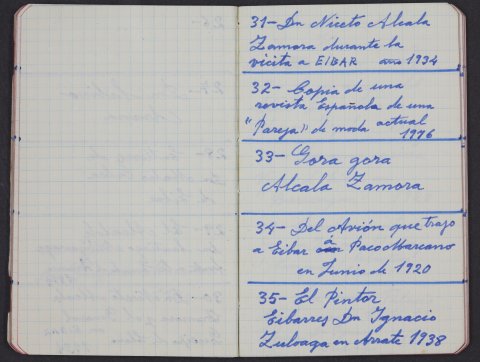 31- Dn Niceto Alcala
Zamora durante la
vicita a EIBAR año 1934
32- Copia de una
revista Española de una
"Pareja" de moda actual
1976
33- Gora gora
Alcala Zamora
34- Del Avión que trajo
a Eibar a Paco Marcano
en Junio de 1920
35- El Pintor
Eibarres Dn Ignacio
Zuloaga en Arrate 1938